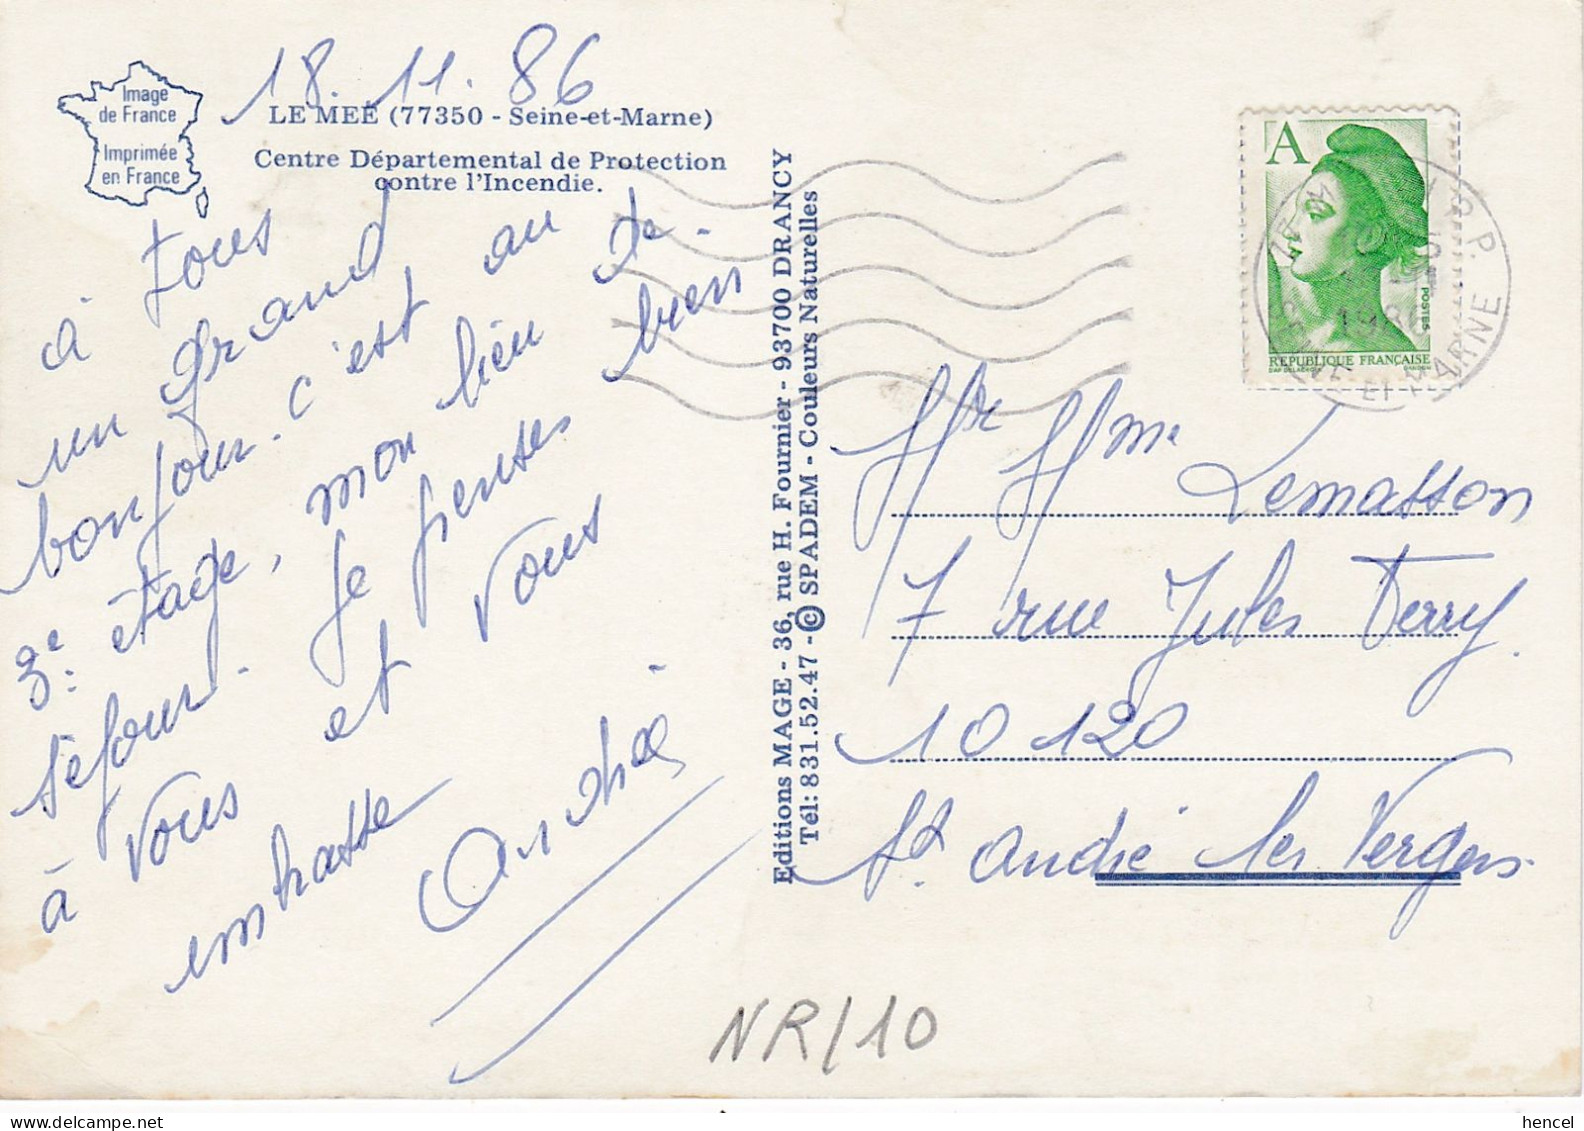 18.11.86
Image
de France
Imprimée
en France
LE MEE (77350 - Seine-et-Marne)
Centre Départemental de Protection
contre l'Incendie.
à tous
un grand
bonjour. c'est au
3e: étage, mon lieu de.
séjour. Je penses bien
à vous et vous
embrasse
Andrée
Editions MAGE - 36, rue H. Fournier - 93700 DRANCY
Tél: 831.52.47 - © SPADEM - Couleurs Naturelles
A
POSTES
REPUBLIQUE FRANÇAISE
1986
SEINE ET MARNE
Mr Mme Lemasson
7 rue Jules Ferry.
10120
St. André les Vergers.
NR/10
hencel